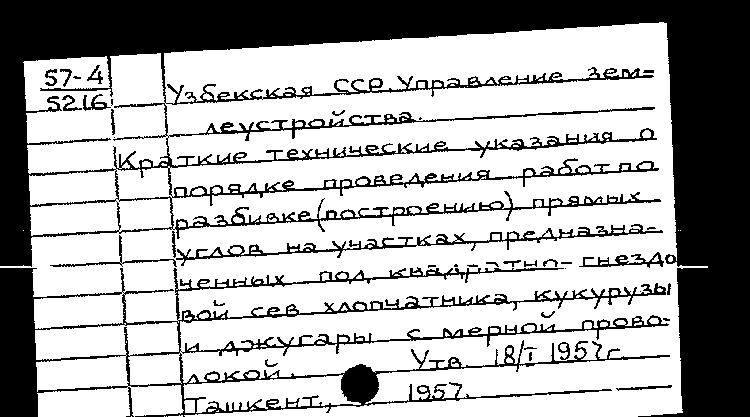 57-4
5216
Узбекская ССР. Управление зем=
леустройства.
Краткие технические указания о
порядке проведения работ по
разбивке (построению) прямых
углов на участках, предназна-
ченных под квадратно-гнездо
вой сев хлопчатника, кукурузы
и джугары с мерной прово-
локой. Утв. 18/I 1957г.
Ташкент, 1957.